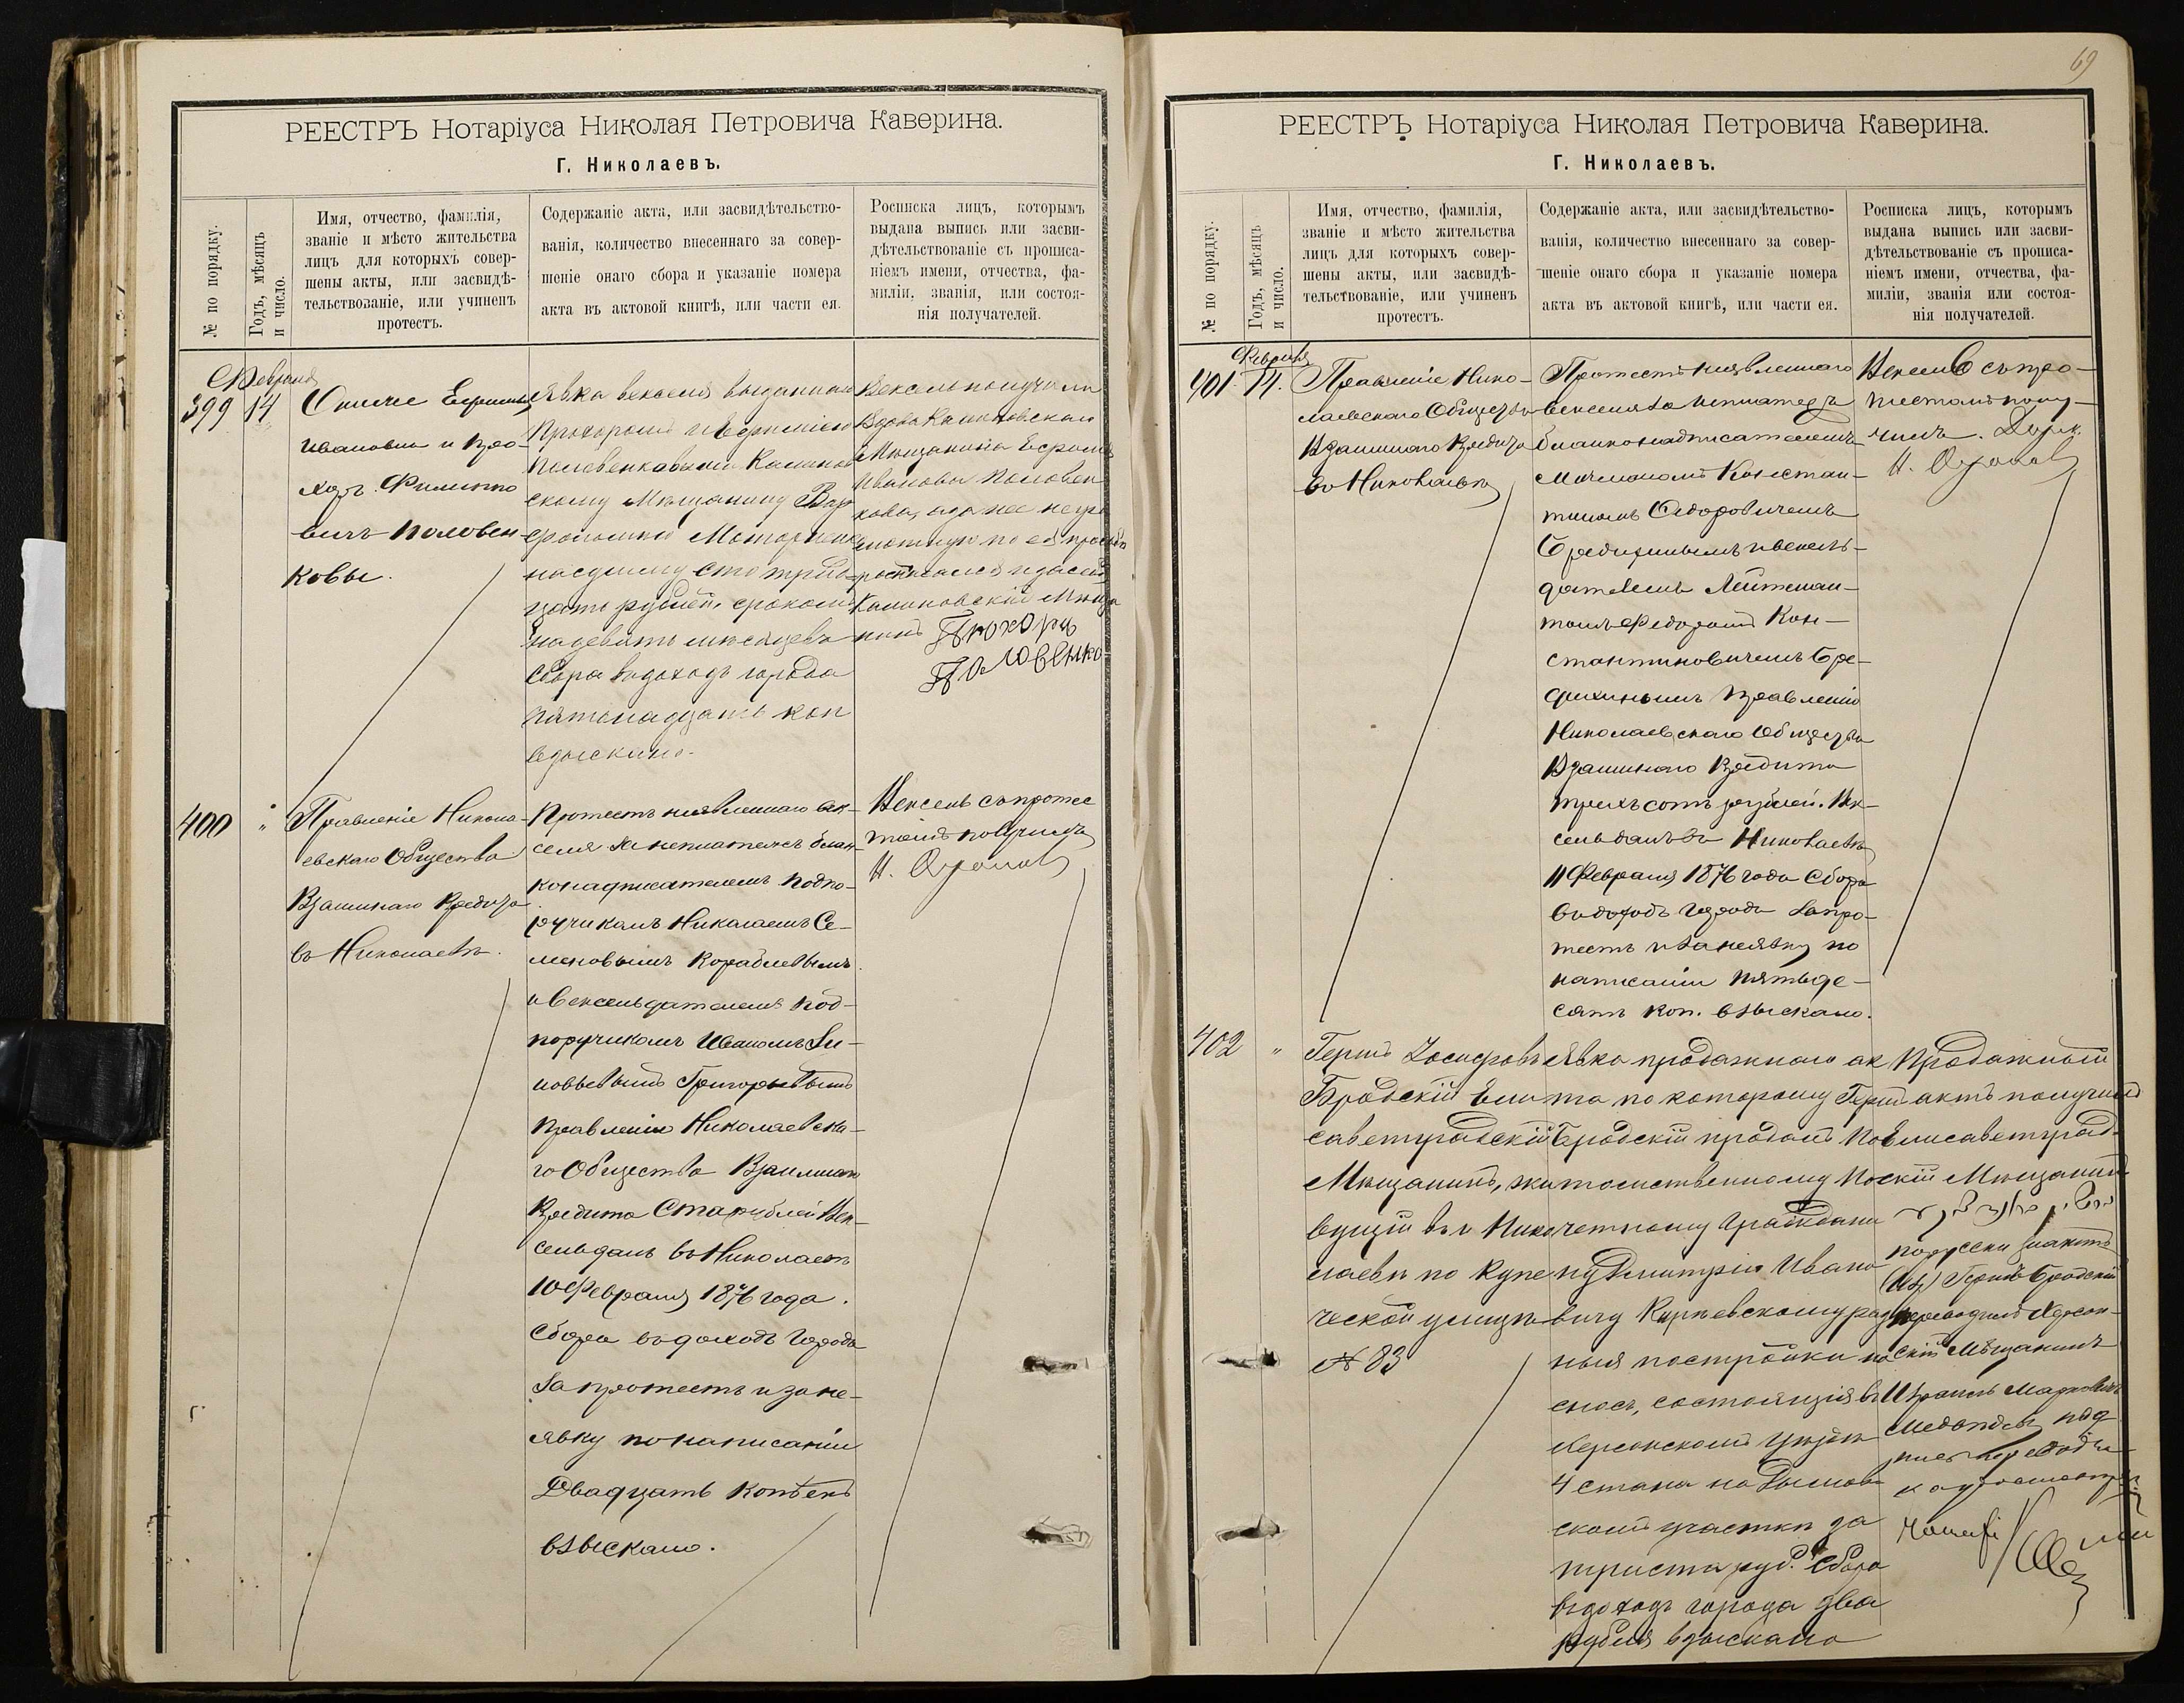 РЕЕСТРЪ Нотаріуса Николая Петровича Каверина.
Г. Николаевъ.
№ по порядку.
Годъ, мѣсяцъ
и число.
Имя, отчество, фамилія,
званіе и мѣсто жительства
лицъ для которыхъ совер-
шены акты, или засвидѣ-
тельствованіе, или учиненъ
протестъ.
Содержаніе акта, или засвидѣтельство-
ванія, количество внесеннаго за совер-
шеніе онаго сбора и указаніе номера
акта въ актовой книгѣ, или части ея.
Росписка лицъ, которымъ
выдана выпись или засви-
дѣтельствованіе съ прописа-
ніемъ имени, отчества, фа-
миліи, званія, или состоя-
нія получателей.
Февраля
399 14
Ивановна и Про-
хоръ
вичъ Половен-
ковы.
Явка векселя выданнаго
Прохоромъ и
Половенковыми Калинов
скому Мещанину
на сумму сто трид
цать рублей, срокомъ
на девять месяцевъ
сбора въ доходъ города
пятьнадцать коп
взыскано.
Вексель получили
Вдова Калиновская
Мещанина
Иванова Половен
кова, а за нее негра
мотную по ея просьбе
росписался
Калиновскій Меща
нинъ Прохоръ
Половенко
400 "
Правленіе Никола-
евскаго Общества
Взаимнаго Кредита
въ Николаевѣ.
Протестъ неявленнаго век-
селя за неплатежъ блан-
конадписателемъ Подпо-
ручикомъ Николаемъ Се-
меновымъ Кораблевымъ
и Векселедателемъ Под-
поручикомъ Иваномъ Зи-
новьевымъ Григорьевымъ
Правленію Николаевска-
го Общества Взаимнаго
Кредита Ста рублей Век-
сель данъ въ Николаевѣ
10 Февраля 1876 года.
Сбора въ доходъ города
За протестъ и за не-
явку по написаніи
Двадцать копѣекъ
взыскано.
Вексель съ протес
томъ получилъ
69
РЕЕСТРЪ Нотаріуса Николая Петровича Каверина.
Г. Николаевъ.
№ по порядку.
Годъ, мѣсяцъ
и число.
Имя, отчество, фамилія,
званіе и мѣсто жительства
лицъ для которыхъ совер-
шены акты, или засвидѣ-
тельствованіе, или учиненъ
протестъ.
Содержаніе акта, или засвидѣтельство-
ванія, количество внесеннаго за совер-
шеніе онаго сбора и указаніе номера
акта въ актовой книгѣ, или части ея.
Росписка лицъ, которымъ
выдана выпись или засви-
дѣтельствованіе съ прописа-
ніемъ имени, отчества, фа-
миліи, званія или состоя-
нія получателей.
Февраля
401. 14.
Правленіе Нико-
лаевскаго Общества
Взаимнаго Кредита
въ Николаевѣ
Протестъ неявленнаго
векселя за неплатежъ
бланконадписателемъ
Мичманомъ Констан-
тиномъ Федоровичемъ
Бредихинымъ и векселе-
дателемъ Лейтенан-
томъ Федоромъ Кон-
стантиновичемъ Бре-
дихинымъ Правленію
Николаевскаго Общества
Взаимнаго Кредита
трехъ сотъ рублей. Век-
сель данъ въ Николаевѣ
11 Февраля 1876 года Сбора
въ доходъ города за про-
тестъ и за неявку по
написаніи пятьде-
сятъ коп. взыскано.
Вексель съ про-
тестомъ полу-
чилъ.
402 "
Гершъ Іосифовъ
Бродскій Ели
саветградскій
Мещанинъ, жи
вущій въ г. Нико
лаевѣ по Купе
ческой улицѣ
№ 83
Явка продажнаго ак
та по которому Гершъ
Бродскій продалъ По
томственному По
четному гражданин
ну Дмитрію Ивано
вичу Курпевскому раз
ныя постройки на
сносъ, состоящія въ
Херсонскомъ уѣздѣ
4 стана на
скомъ участкѣ за
триста руб. Сбора
въ доходъ города два
рубля взыскано
Продажный
актъ получилъ
Елисаветград-
скій Мещанинъ
порусски значитъ
Гершъ Бродскій
переводилъ Херсон-
скій Мещанинъ
Израиль Марковичъ